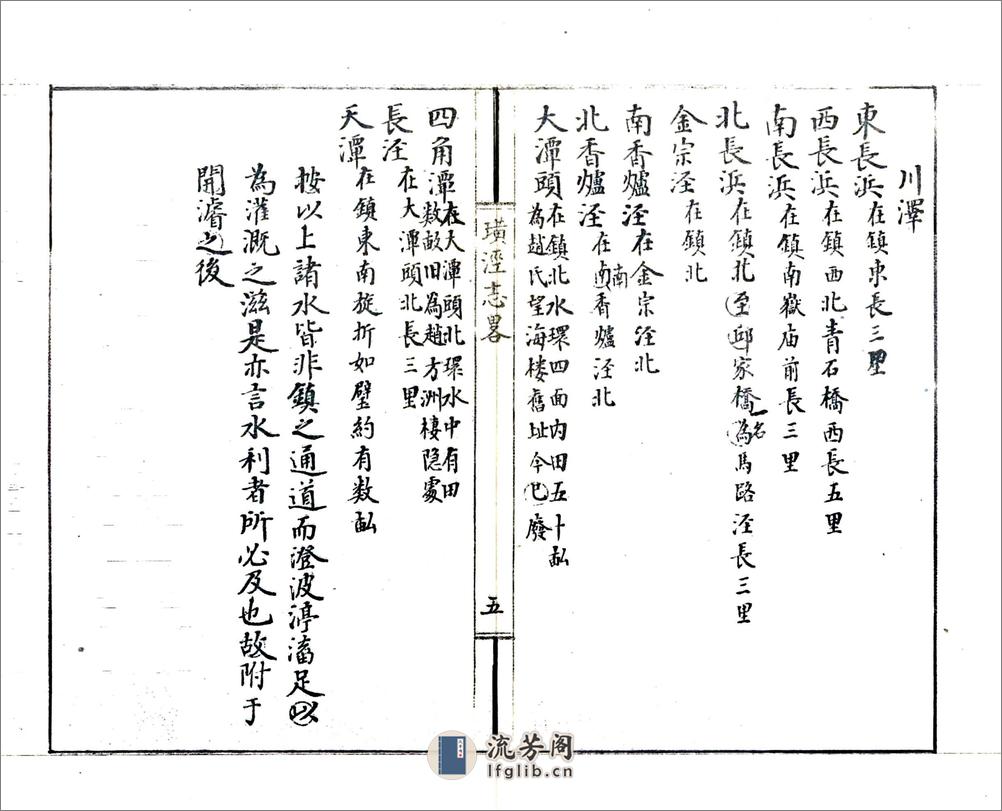 川澤
東長浜在鎮東長三里
西長浜在鎮西北青石橋西長五里
南長浜在鎮南嶽庙前長三里
北長浜在鎮北至邱家橋一名為馬路涇長三里
金宗涇在鎮北
南香爐涇在金宗涇北
北香爐涇在南南香爐涇北
大潭頭在鎮北水環四面内田五十畝
為趙氏望海楼舊址今已廢
璜涇志畧
五
四角潭在大潭頭北環水中有田
数畝旧為趙方洲棲隐處
長涇在大潭頭北長三里
天潭在鎮東南旋折如壁約有数畝
按以上諸水皆非鎮之通道而澄波渟滀足以
為灌溉之滋是亦言水利者所必及也故附于
開濬之後
流芳阁
lfglib.cn